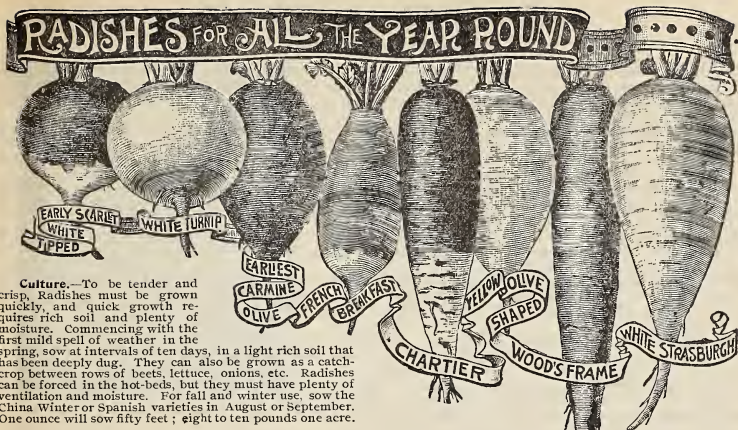 RADISHES FOR ALL THE YEAR ROUND
EARLY SCARLET
WHITE
TIPPED
WHITE TURNIP
EARLIEST
CARMINE
OLIVE
FRENCH
BREAKFAST
CHARTIER
YELLOW OLIVE
SHAPED
WOOD'S FRAME
WHITE STRASBURGH
Culture.—To be tender and
crisp, Radishes must be grown
quickly, and quick growth re-
quires rich soil and plenty of
moisture. Commencing with the
first mild spell of weather in the
spring, sow at intervals of ten days, in a light rich soil that
has been deeply dug. They can also be grown as a catch-
crop between rows of beets, lettuce, onions, etc. Radishes
can be forced in the hot-beds, but they must have plenty of
ventilation and moisture. For fall and winter use, sow the
China Winter or Spanish varieties in August or September.
One ounce will sow fifty feet; eight to ten pounds one acre.